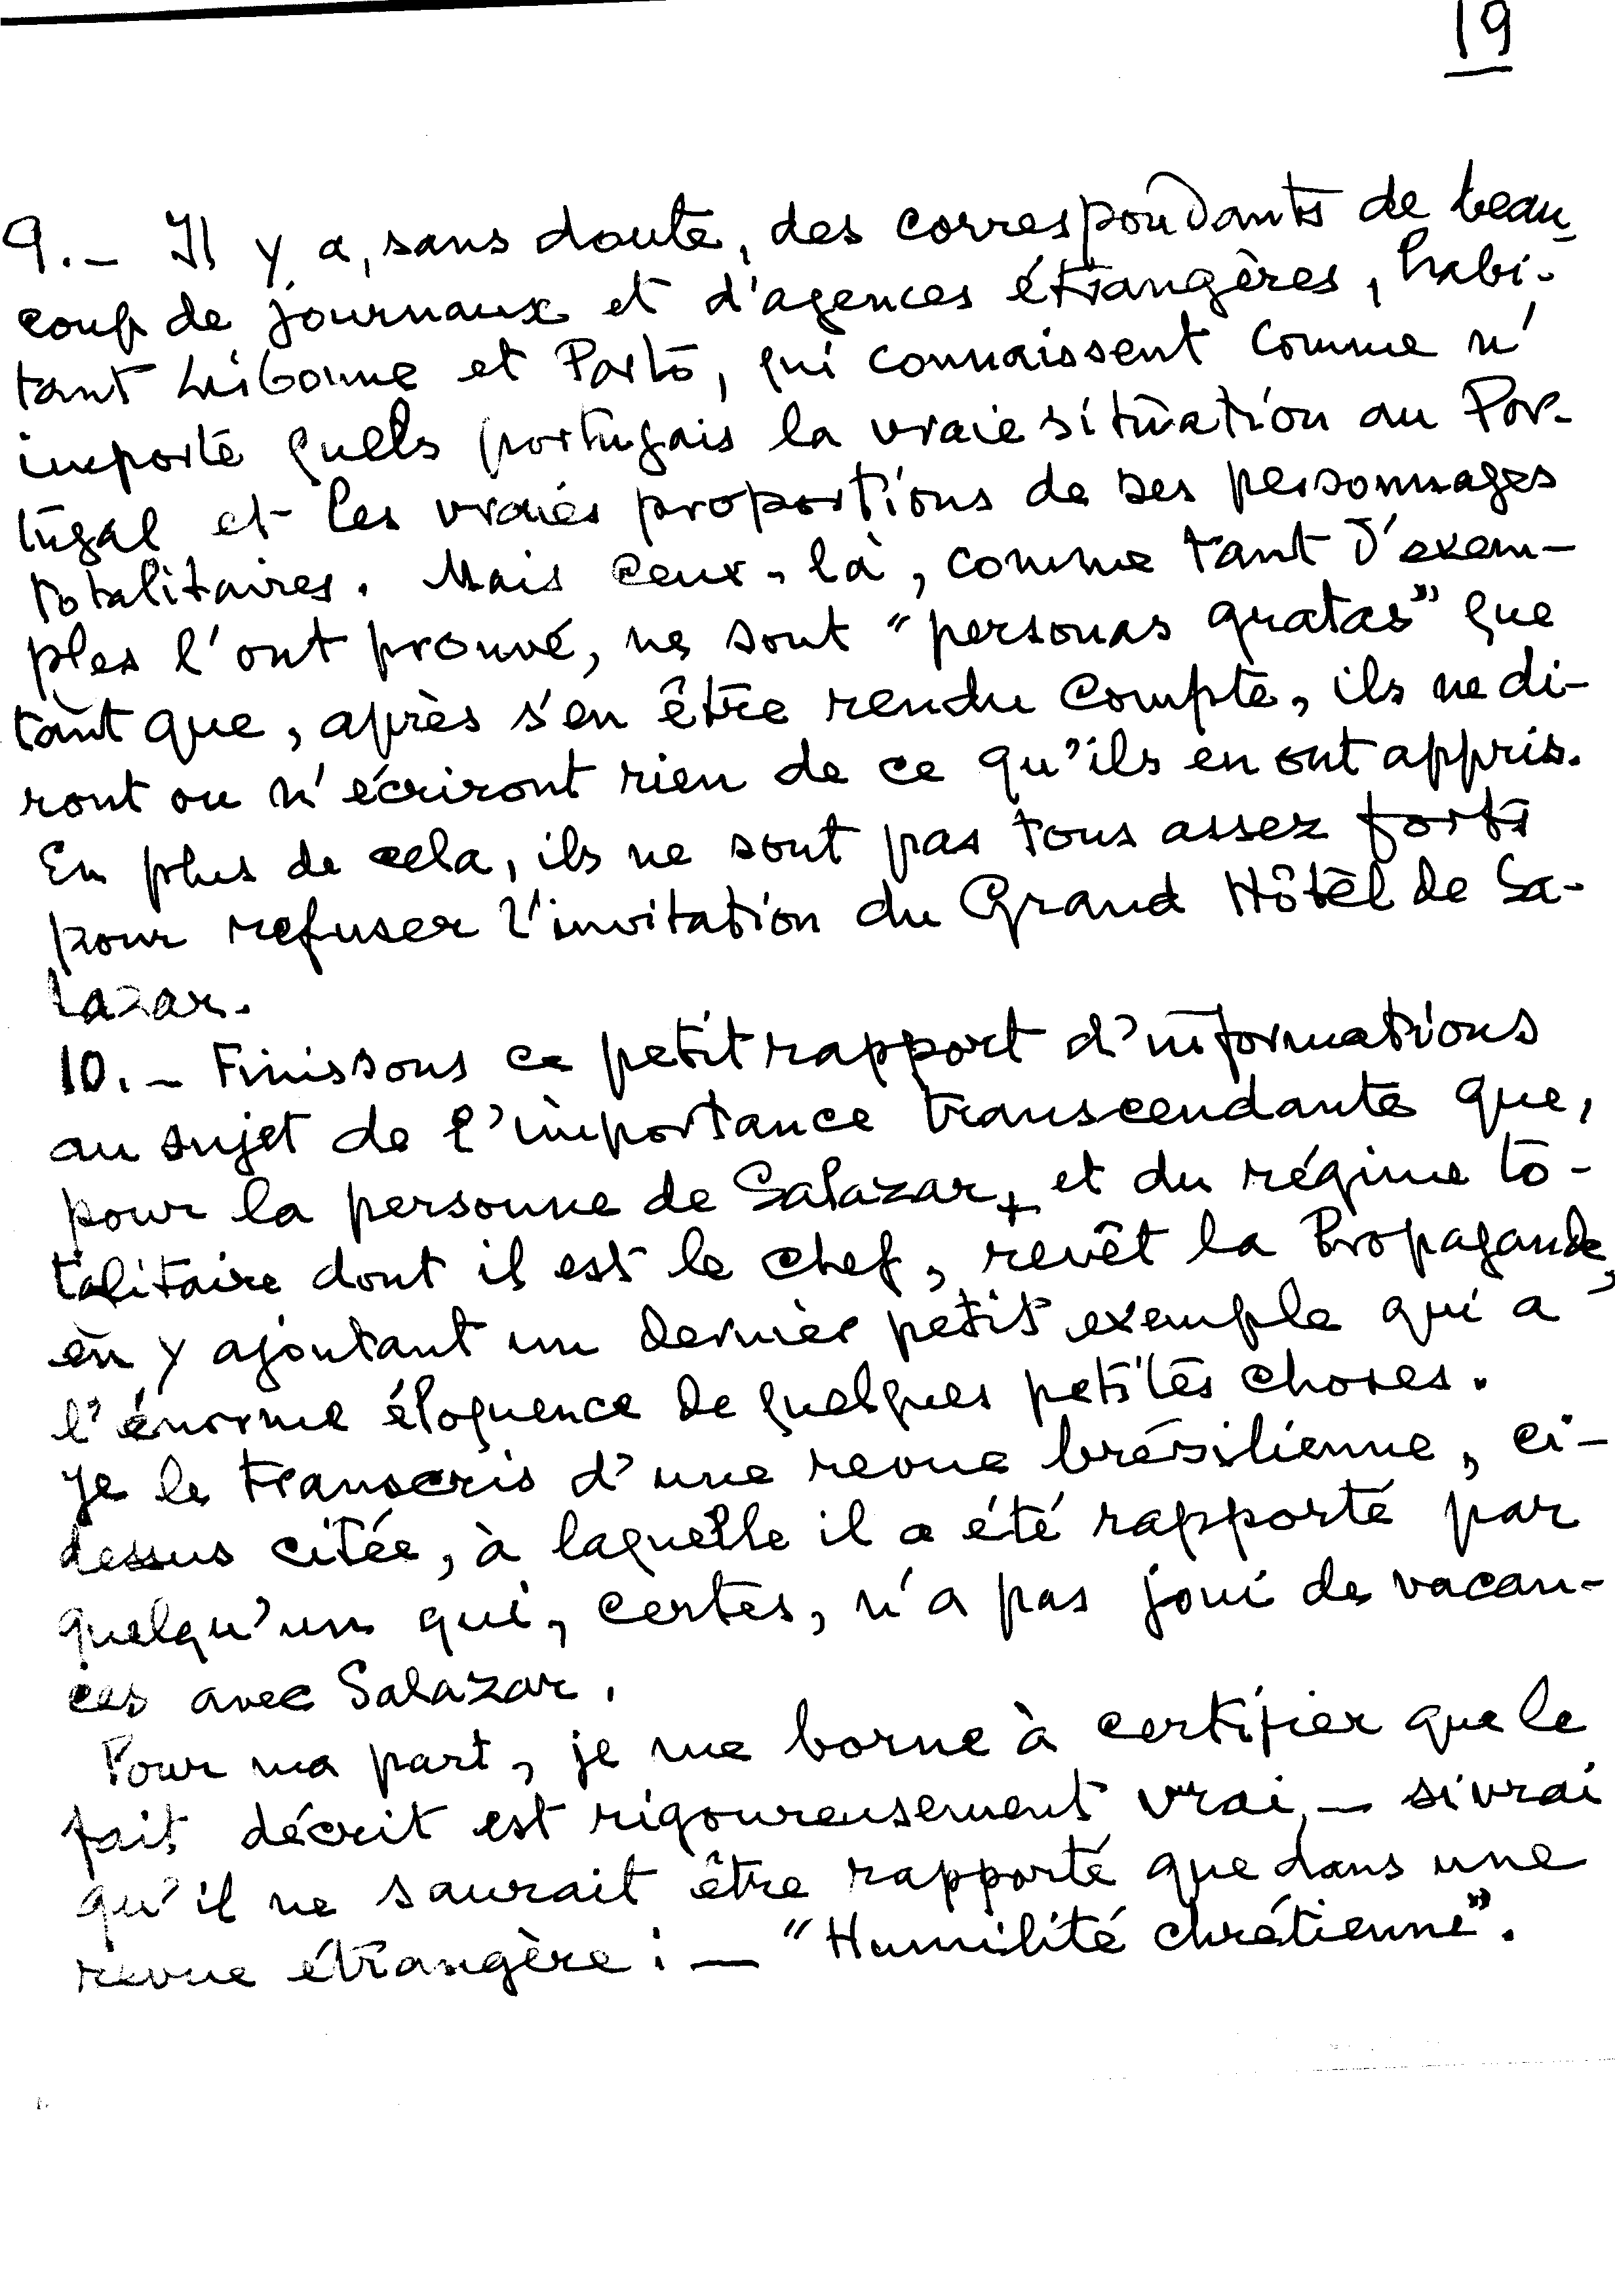 19
9.— Il y a, sans doute, des correspondants de beau-
coup de journaux et d'agences étrangères, habi-
tant Lisbonne et Porto, qui connaissent comme n'
importe quels portugais la vraie situation au Por-
tugal et les vraies proportions de ses personnages
totalitaires. Mais ceux-là, comme tant d'exem-
ples l'ont prouvé, ne sont "personas gratas" que
tant que, après s'en être rendu compte, ils ne di-
ront ou n'écriront rien de ce qu'ils en ont appris.
En plus de cela, ils ne sont pas tous assez forts
pour refuser l'invitation du Grand Hôtel de Sa-
lazar.
10.— Finissons ce petit rapport d'informations
au sujet de l'importance transcendante que,
pour la personne de Salazar, et du régime to-
talitaire dont il est le chef, revêt la Propagande,
en y ajoutant un dernier petit exemple qui a
l'énorme éloquence de quelques petites choses.
Je le transcris d'une revue brésilienne, ci-
dessus citée, à laquelle il a été rapporté par
quelqu'un qui, certes, n'a pas joui de vacan-
ces avec Salazar.
Pour ma part, je me borne à certifier que le
fait décrit est rigoureusement vrai, — si vrai
qu'il ne saurait être rapporté que dans une
revue étrangère : — "Humilité chrétienne".